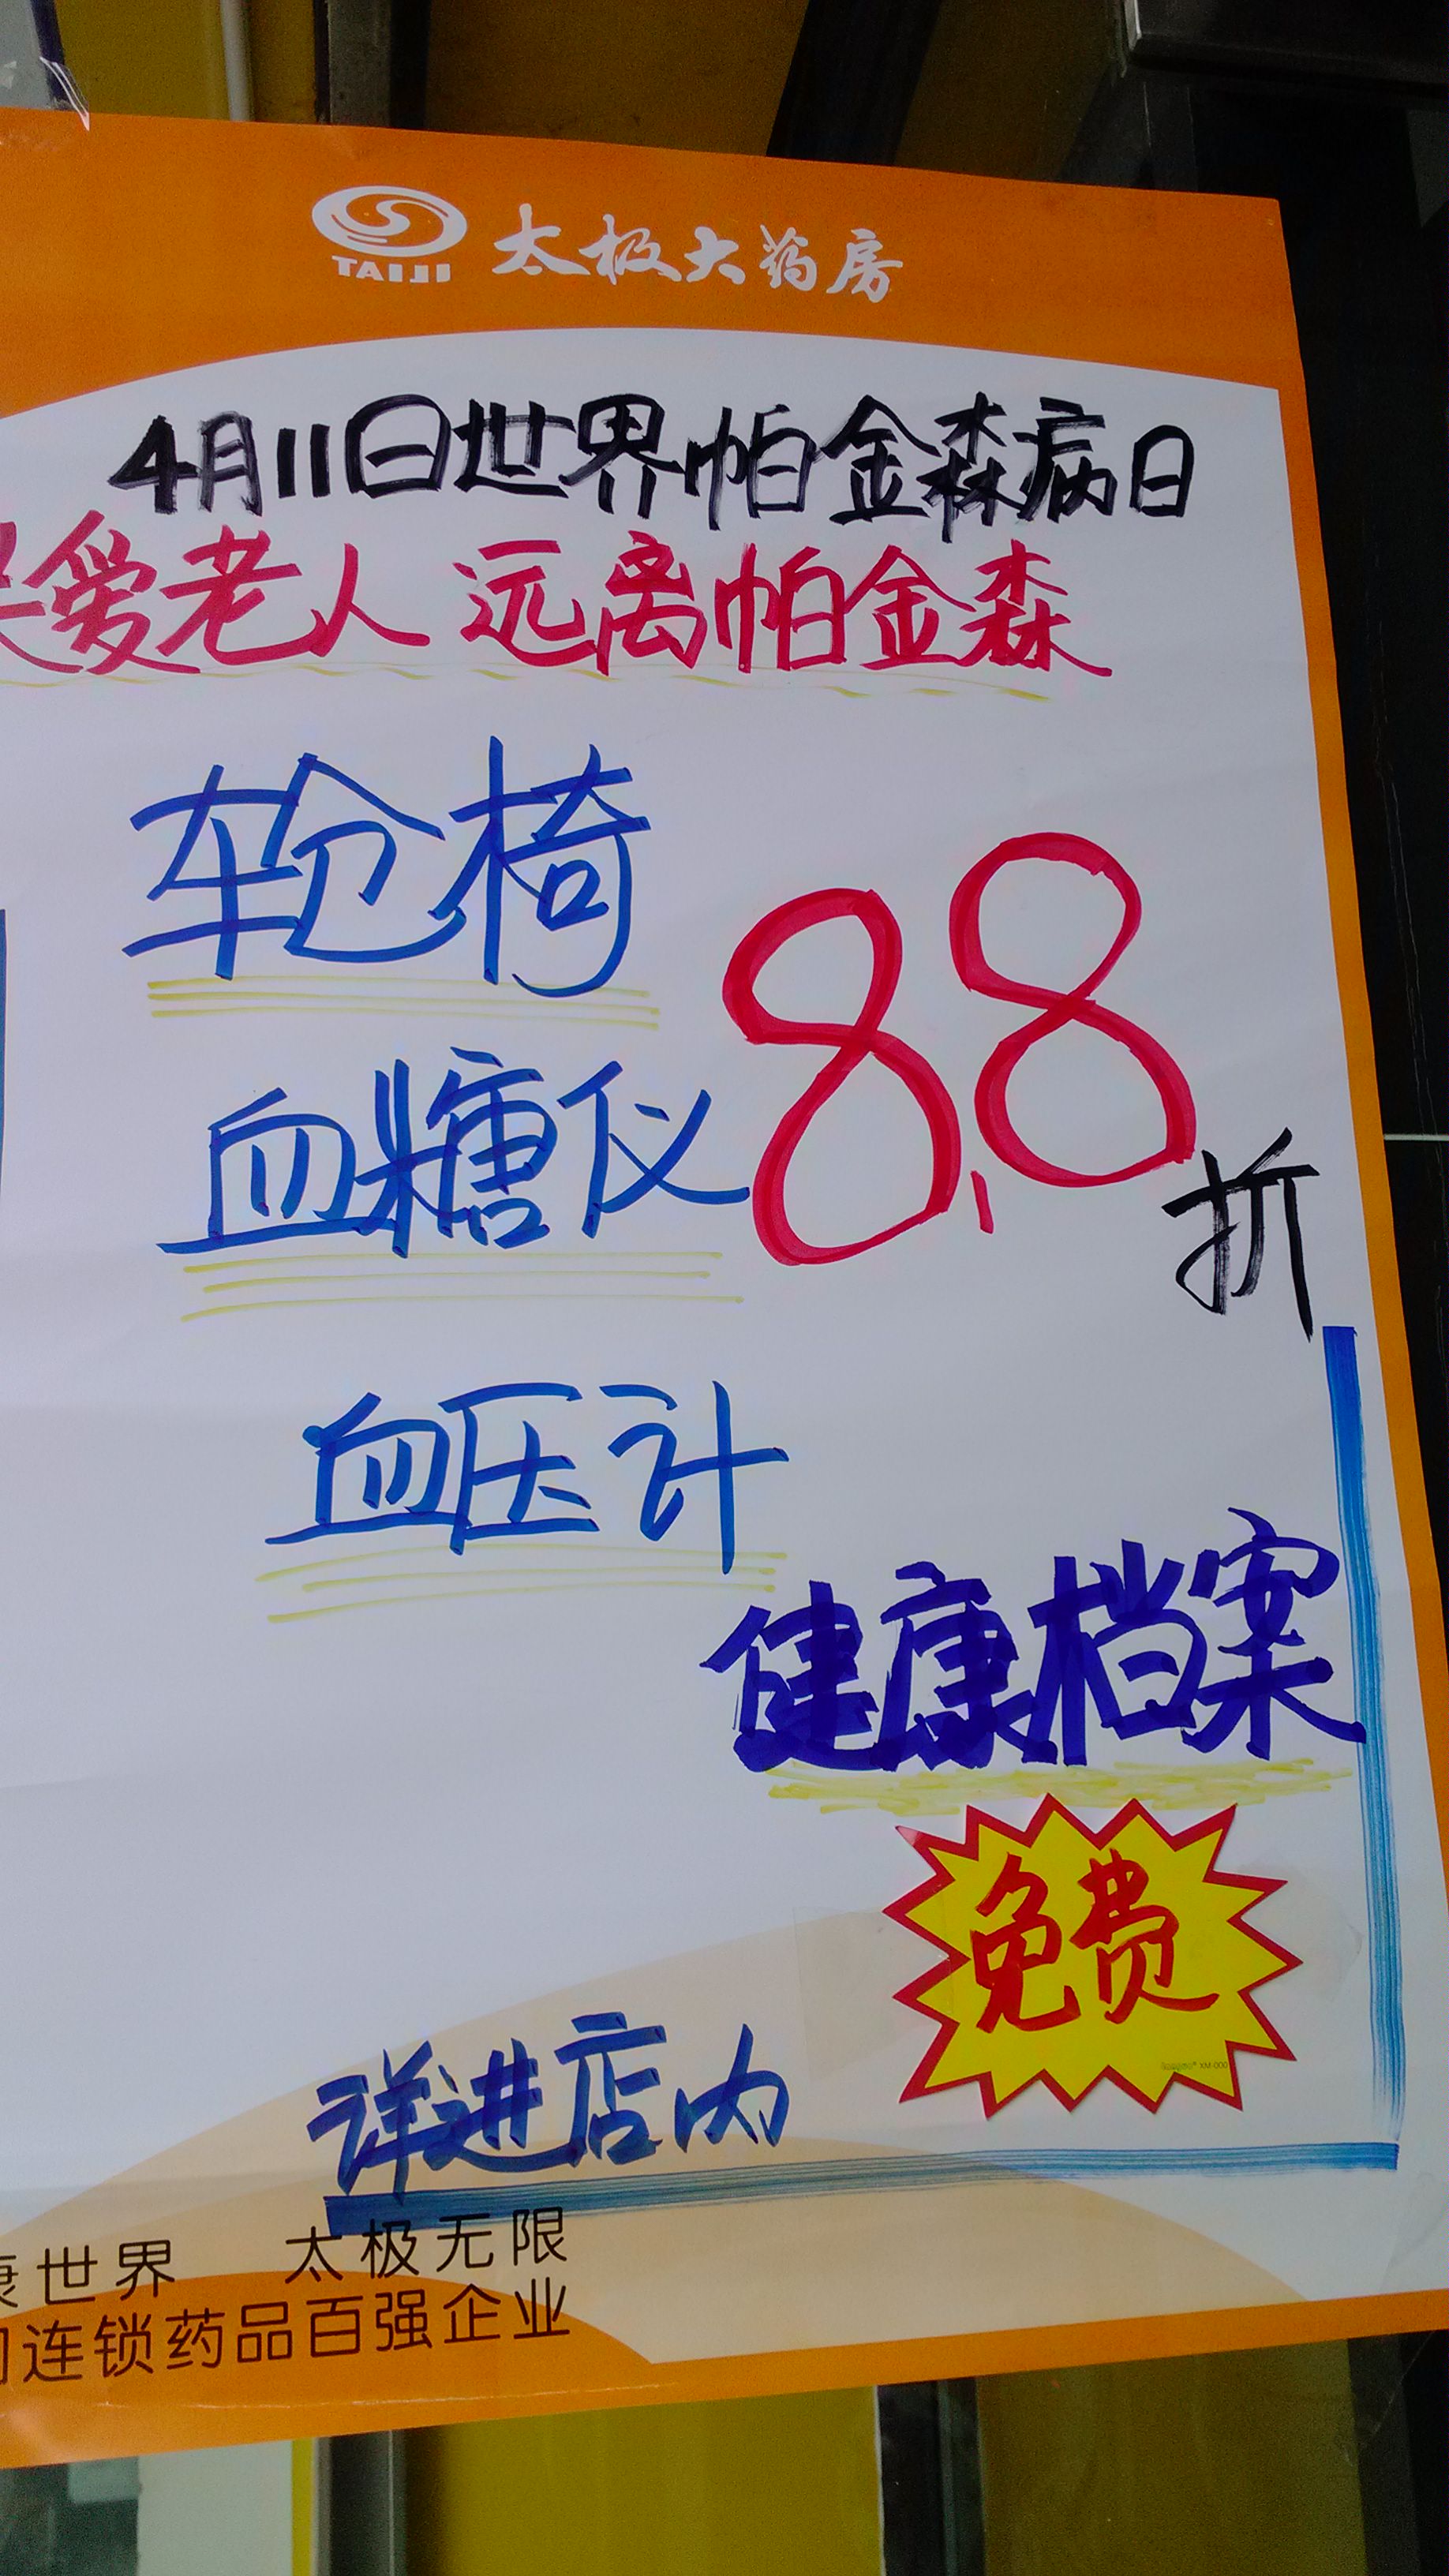 TAIJI 太极大药房
4月11日世界帕金森病日
关爱老人 远离帕金森
轮椅
血糖仪
8.8折
血压计
健康档案
免费
详进店内
康世界 太极无限
连锁药品百强企业